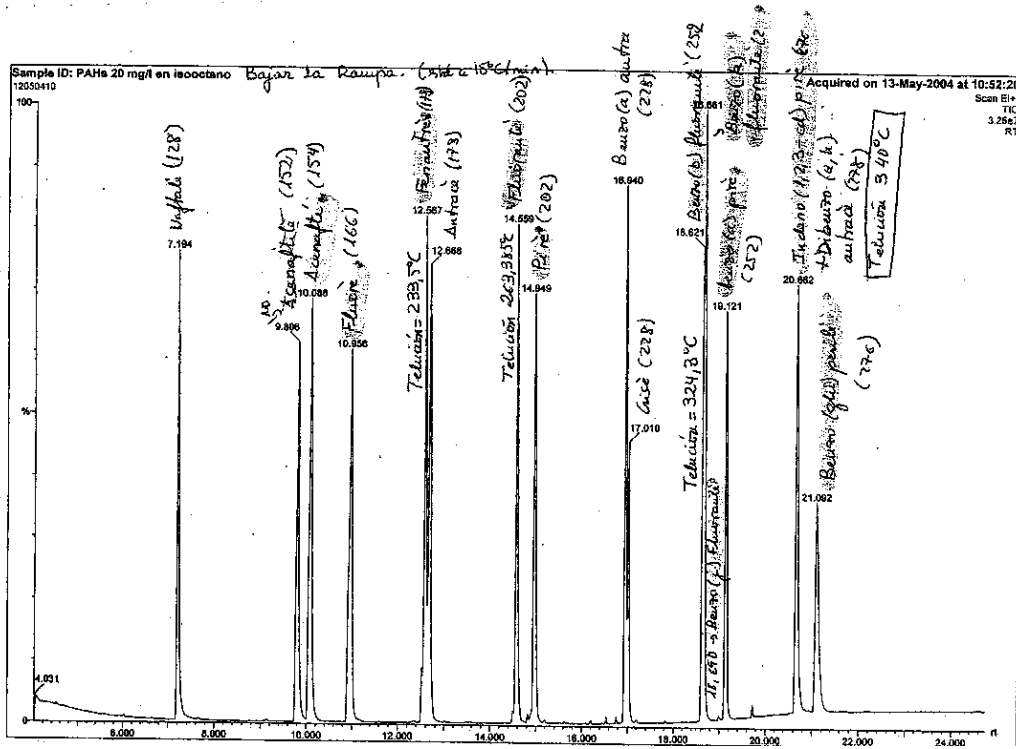 Sample ID: PAHs 20 mg/l en isooctano
Bajar la Rampa.
12050410
Acquired on 13-May-2004 at 10:52:20
Scan EI+
TIC
RT
100
%
0
4.031
Naftalè (128)
7.194
(152)
9.806
Acenaftè (154)
10.088
Fluorè (166)
10.956
Telución = 233,5°C
Fenantrè (178)
12.567
Antracè (178)
12.668
Telución 263,385°C
Fluorantè (202)
14.559
Pirè (202)
14.949
Benzo(a) antra
(228)
16.940
Crisè (228)
17.010
Telución = 324,3°C
Benzo(b) fluorantè (252
18.621
18,690 → Benzo(j) Fluorantè
Benzo(k)
fluorantè (2
Benzo(a) pirè
(252)
19.121
Indeno (1,2,3-cd) pirè
20.662
+ Dibenzo (a,h)
antracè (278)
Telución 340°C
Benzo (ghi) perilè
(276)
21.092
6.000 8.000 10.000 12.000 14.000 16.000 18.000 20.000 22.000 24.000
rt